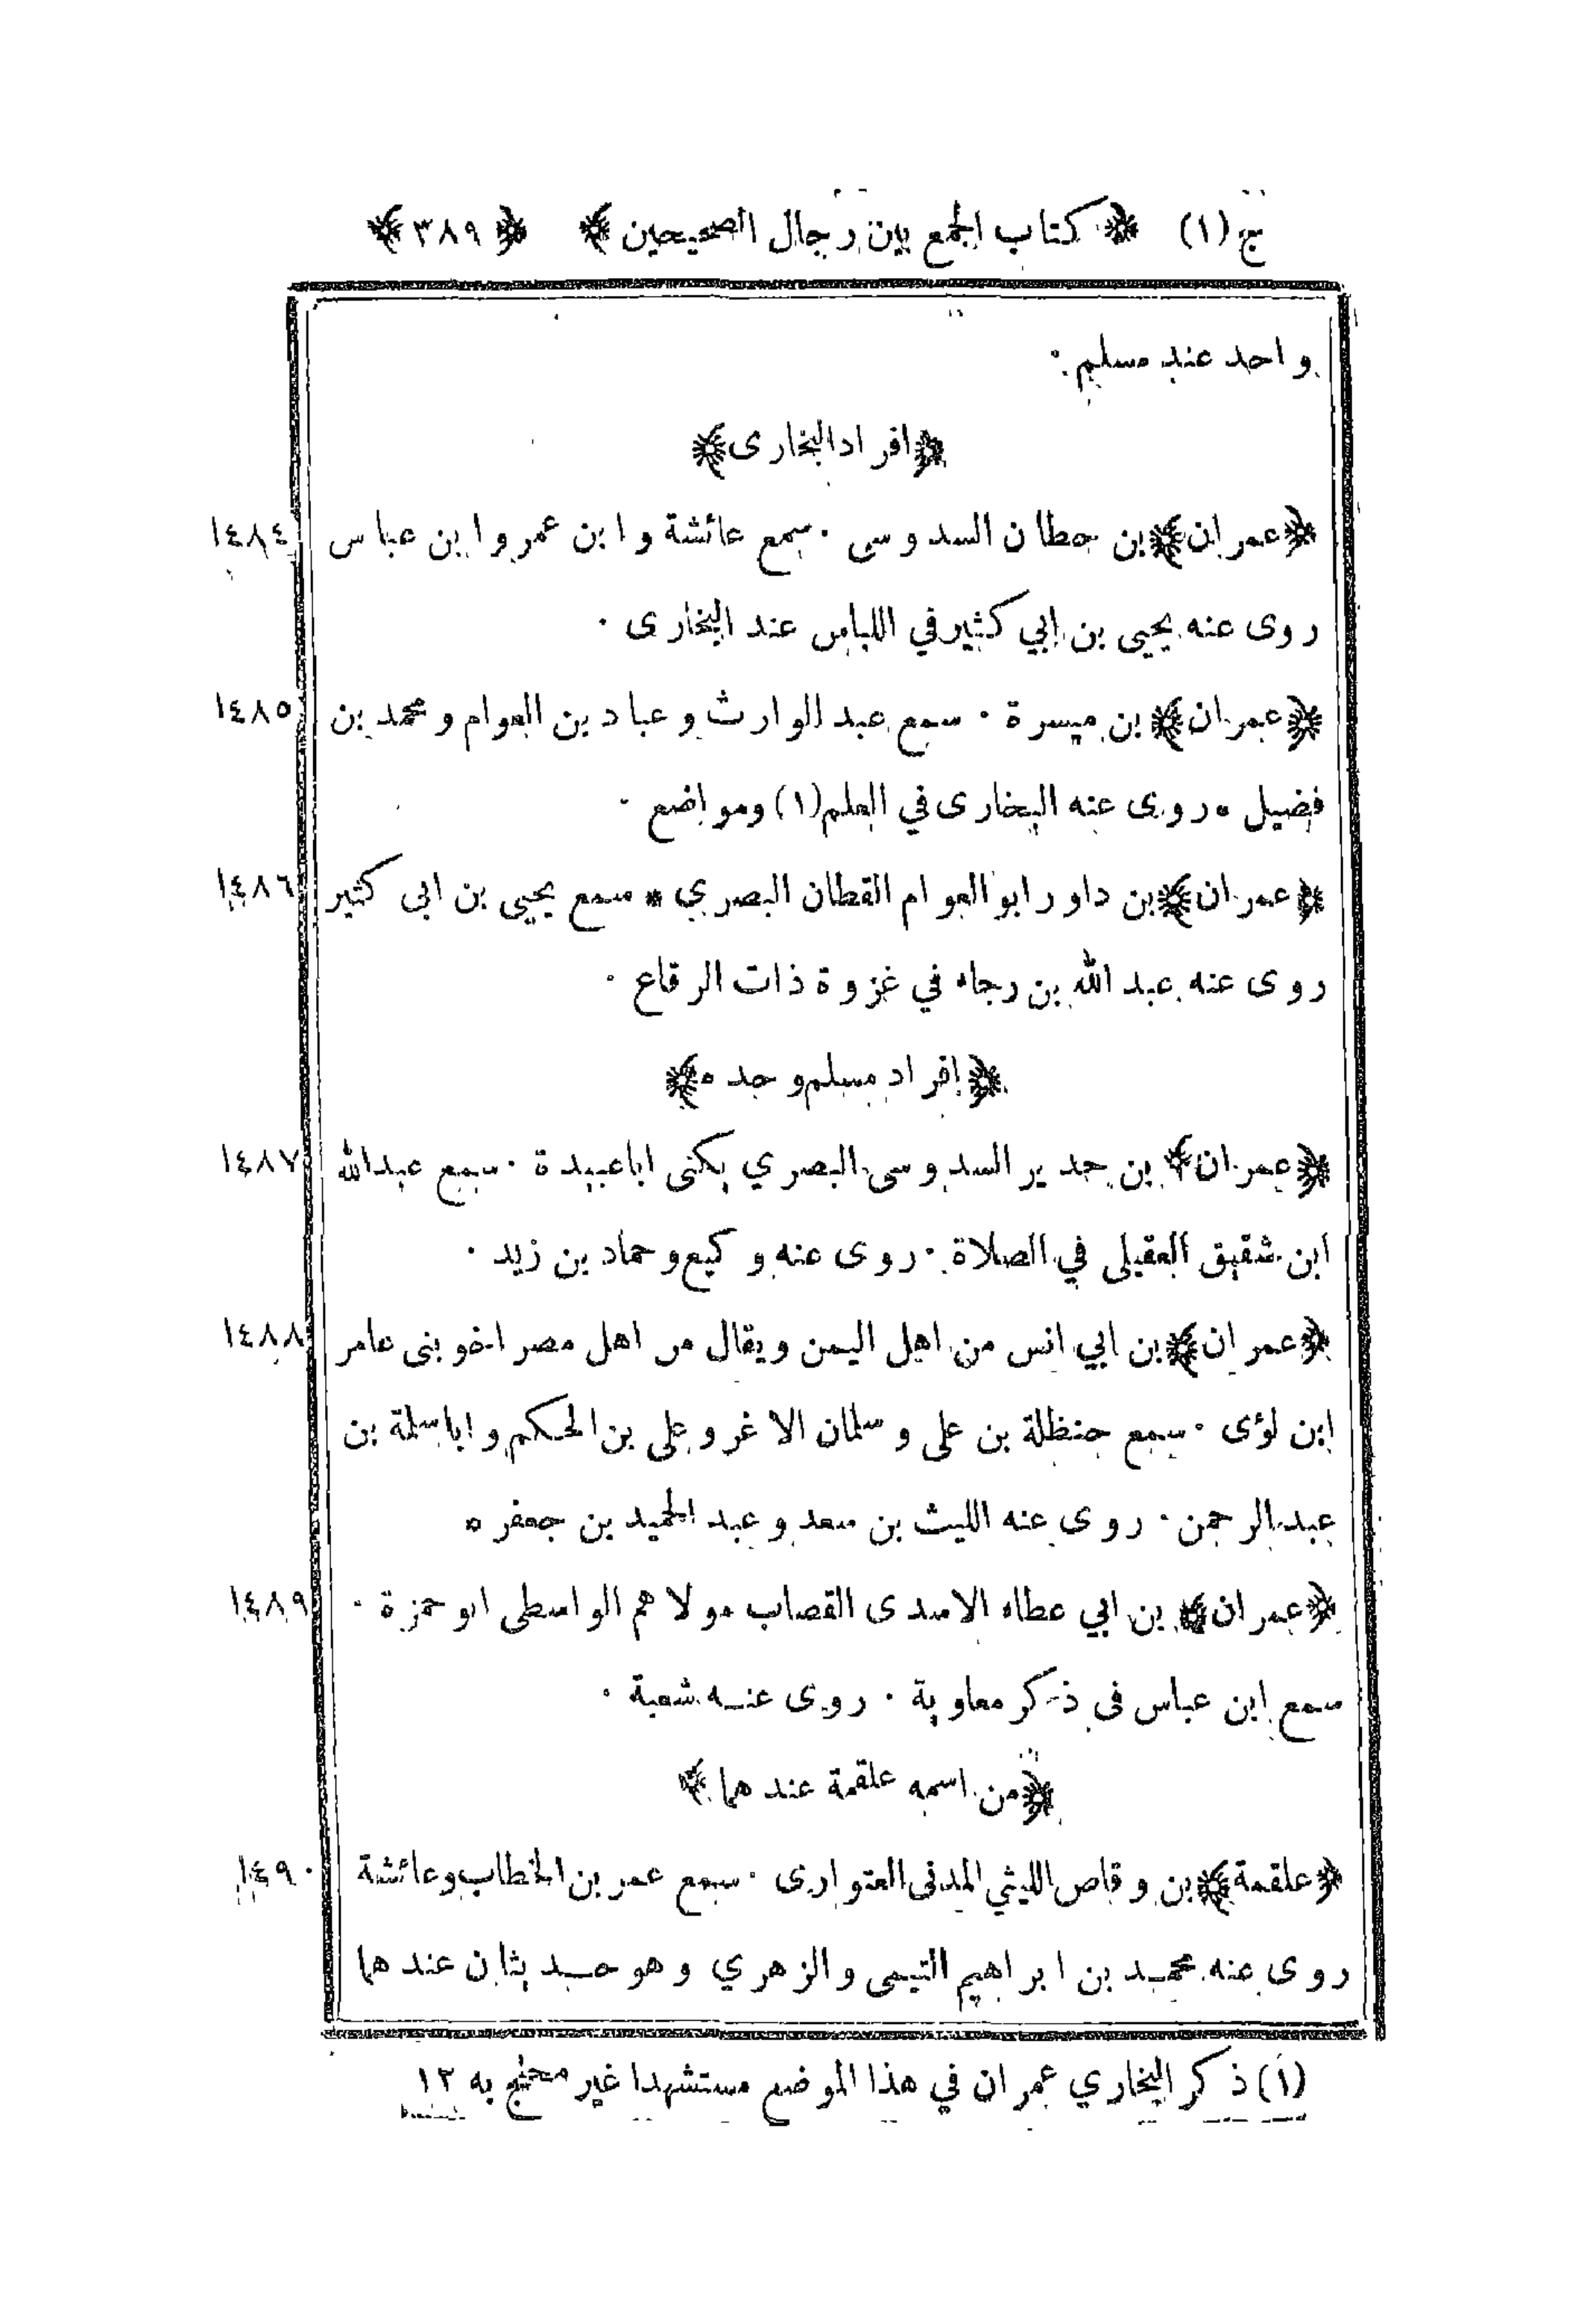 ج (١) ﴿ كتاب الجمع بين رجال الصحيحين ﴾ ﴿ ٣٨٩ ﴾
واحد عند مسلم .
﴿ افراد البخارى ﴾
﴿ عمران ﴾ بن حطان السدوسى . سمع عائشة وابن عمر وابن عباس ١٤٨٤
روى عنه يحيى بن ابي كثير في اللباس عند البخارى .
﴿ عمران ﴾ بن ميسرة . سمع عبد الوارث وعباد بن العوام ومحمد بن ١٤٨٥
فضيل ه روى عنه البخارى في العلم (١) ومواضع .
﴿ عمران ﴾ بن داور ابو العوام القطان البصري * سمع يحيى بن ابى كثير ١٤٨٦
روى عنه عبد الله بن رجاء في غزوة ذات الرقاع .
﴿ افراد مسلم وحده ﴾
﴿ عمران ﴾ بن حدير السدوسى البصري يكنى اباعبيدة . سمع عبدالله ١٤٨٧
ابن شقيق العقيلى في الصلاة . روى عنه وكيع وحماد بن زيد .
﴿ عمران ﴾ بن ابي انس من اهل اليمن ويقال من اهل مصر اخو بنى عامر ١٤٨٨
ابن لؤى . سمع حنظلة بن على وسلمان الاغر وعلى بن الحكم واباسلمة بن
عبد الرحمن . روى عنه الليث بن سعد وعبد الحميد بن جعفر ه
﴿ عمران ﴾ بن ابي عطاء الاسدى القصاب مولاهم الواسطى ابو حمزة . ١٤٨٩
سمع ابن عباس فى ذكر معاوية . روى عنه شعبة .
﴿ من اسمه علقمة عندهما ﴾
﴿ علقمة ﴾ بن وقاص الليثي المدنى العتوارى . سمع عمر بن الخطاب وعائشة ١٤٩٠
روى عنه محمد بن ابراهيم التيمى والزهري وهو حديثان عندهما
(١) ذكر البخاري عمران في هذا الموضع مستشهدا غير محتج به ١٢